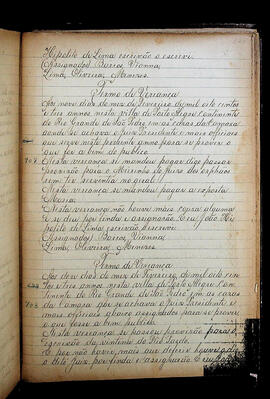 Hipolito de Lima escrivão o escrevi.
(Assignados) Barros, Vianna,
Lima, Oliveira, Menezes.
Termo de Veriança
Aos nove dias do mez de Fevereiro de mil oito centos
e tres annos nesta villa de Porto Alegre Continente
do Rio Grande de São Pedro em as casas da Camara
donde se achava o juiz Presidente e mais officiaes
que serve neste presente anno para se prover o
que for a bem do publico.
Nesta veriança se mandou pagar digo passar
provisão para o Meirinho do juizo dos orphãos
Nesta veriança se mandou pagar a exposta
Maria.
Nesta veriança não houve mais cousa alguma
e se deu por finda e assignarão. Eu João Hi
polito de Lima escrivão o escrevi.
(Assignados) Barros, Vianna,
Lima, Oliveira, Menezes.
Termo de Veriança
Aos dias do mez de Fevereiro de mil oito cen
tos e tres annos nesta villa de Porto Alegre Con
tinente do Rio Grande de São Pedro em as casas
da Camara que se achava o juiz Presidente e
mais officiaes abaixo assignados para se prover
o que fosse a bem publico.
Nesta veriança se passou provisão para o
escrivão da vintena do Rio Pardo.
E por não haver mais que deferir
o dito juiz por finda e assignarão Eu João